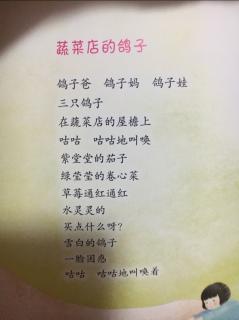 蔬菜店的鸽子
鸽子爸 鸽子妈 鸽子娃
三只鸽子
在蔬菜店的屋檐上
咕咕 咕咕地叫唤
紫堂堂的茄子
绿莹莹的卷心菜
草莓通红通红
水灵灵的
买点什么呀?
雪白的鸽子
一脸困惑
咕咕 咕咕地叫唤着